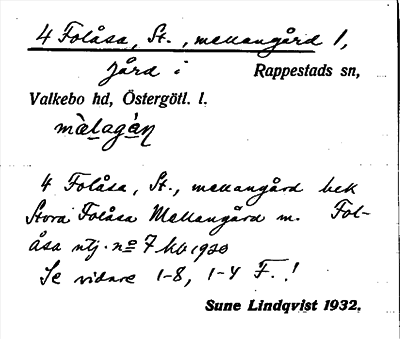 4 Folåsa, St., mellangård 1,
gård i Rappestads sn,
Valkebo hd, Östergötl. l.
màlagáṇ
4 Folåsa, St., mellangård bek
Stora Folåsa Mellangård m. Fol-
åsa ntj. nº 7 hb 1920
Se vidare 1-8, 1-4 F.!
Sune Lindqvist 1932.